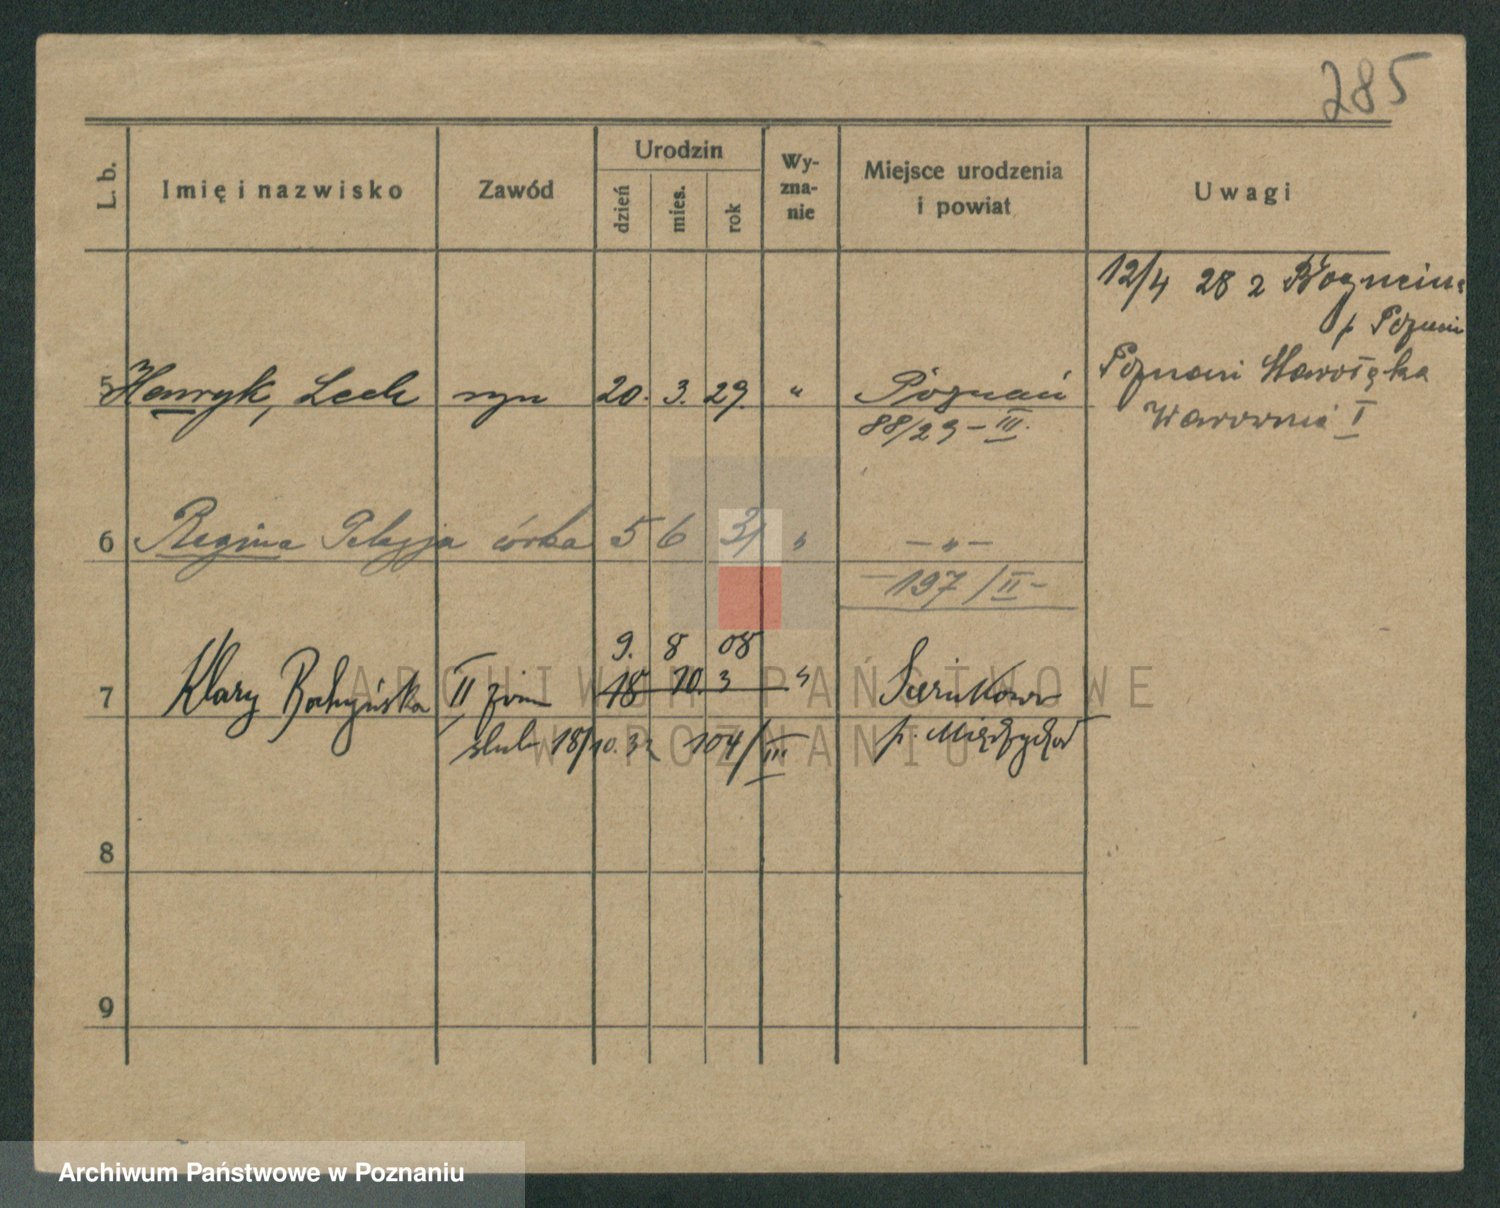 285
L. b.
Imię i nazwisko
Zawód
Urodzin
dzień
mies.
rok
Wy-
zna-
nie
Miejsce urodzenia
i powiat
Uwagi
12/4 28 z
p Poznań
Poznań Starołęka
Warownia I
5 Henryk, Lech syn 20. 3. 29. " Poznań
88/29 - III.
6 Regina Pelagja córka 5 6 31 " - " -
- 197 / II -
9. 8 08
7 Klary Bochyńska II żona 18 10. 3 " Sieraków
ślub 18/10. 32 104/III p. Międzychód
8
9
ARCHIWUM PAŃSTWOWE
W POZNANIU
Archiwum Państwowe w Poznaniu